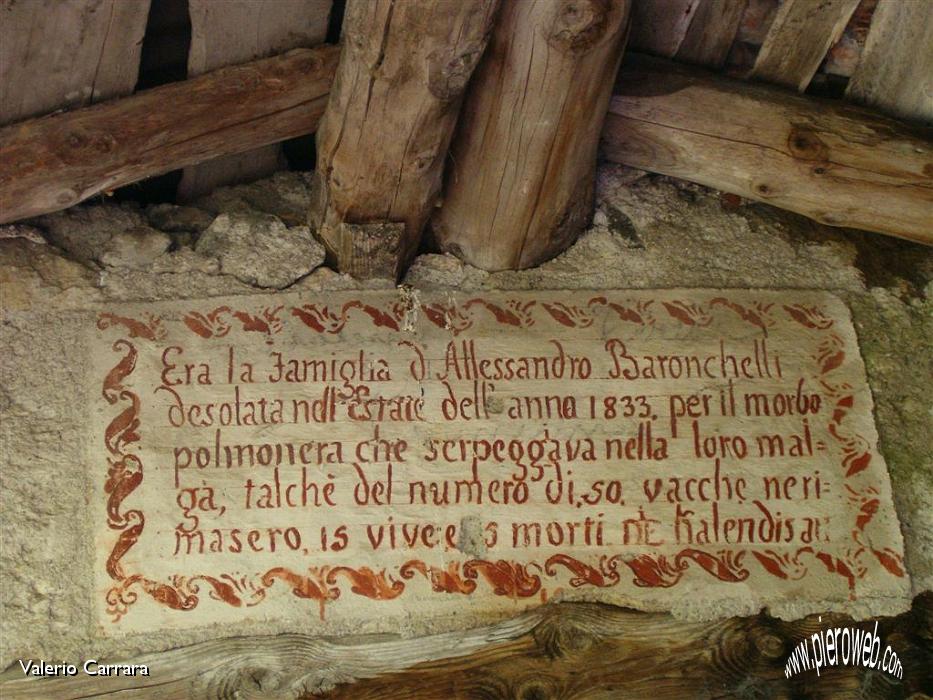 Era la Famiglia di Allessandro Baronchelli
desolata nell'Estate dell' anno 1833. per il morbo
polmonera che serpeggava nella loro mal=
ga, talchè del numero di,50. vacche ne ri=
masero. 15 vive e 5 morti Kalendis
Valerio Carrara
www.pieroweb.com